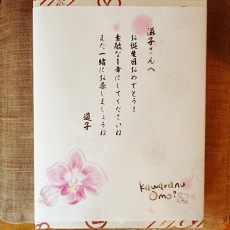 滋子さんへ
お誕生日おめでとう!
素敵な1年にしてくださいね
また一緒にお茶しましょうね
道子
Kawaranu
Omoi